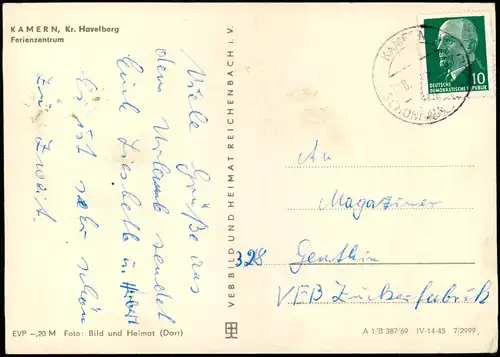 KAMERN, Kr. Havelberg
Ferienzentrum
Viele Grüße aus
dem Urlaub sendet
Eure Liesbeth u. Herbert
Es ist sehr schön
zu Zweit.
EVP –,20 M Foto: Bild und Heimat (Darr)
VEB BILD UND HEIMAT REICHENBACH i. V.
KAMERN
8.
SCHÖNHAUSEN
DEUTSCHE
DEMOKRATISCHE REPUBLIK
10
An
Magaziner
328 Genthin
VEB Zuckerfabrik
A 1/B 387/69 IV-14-45 7/2999